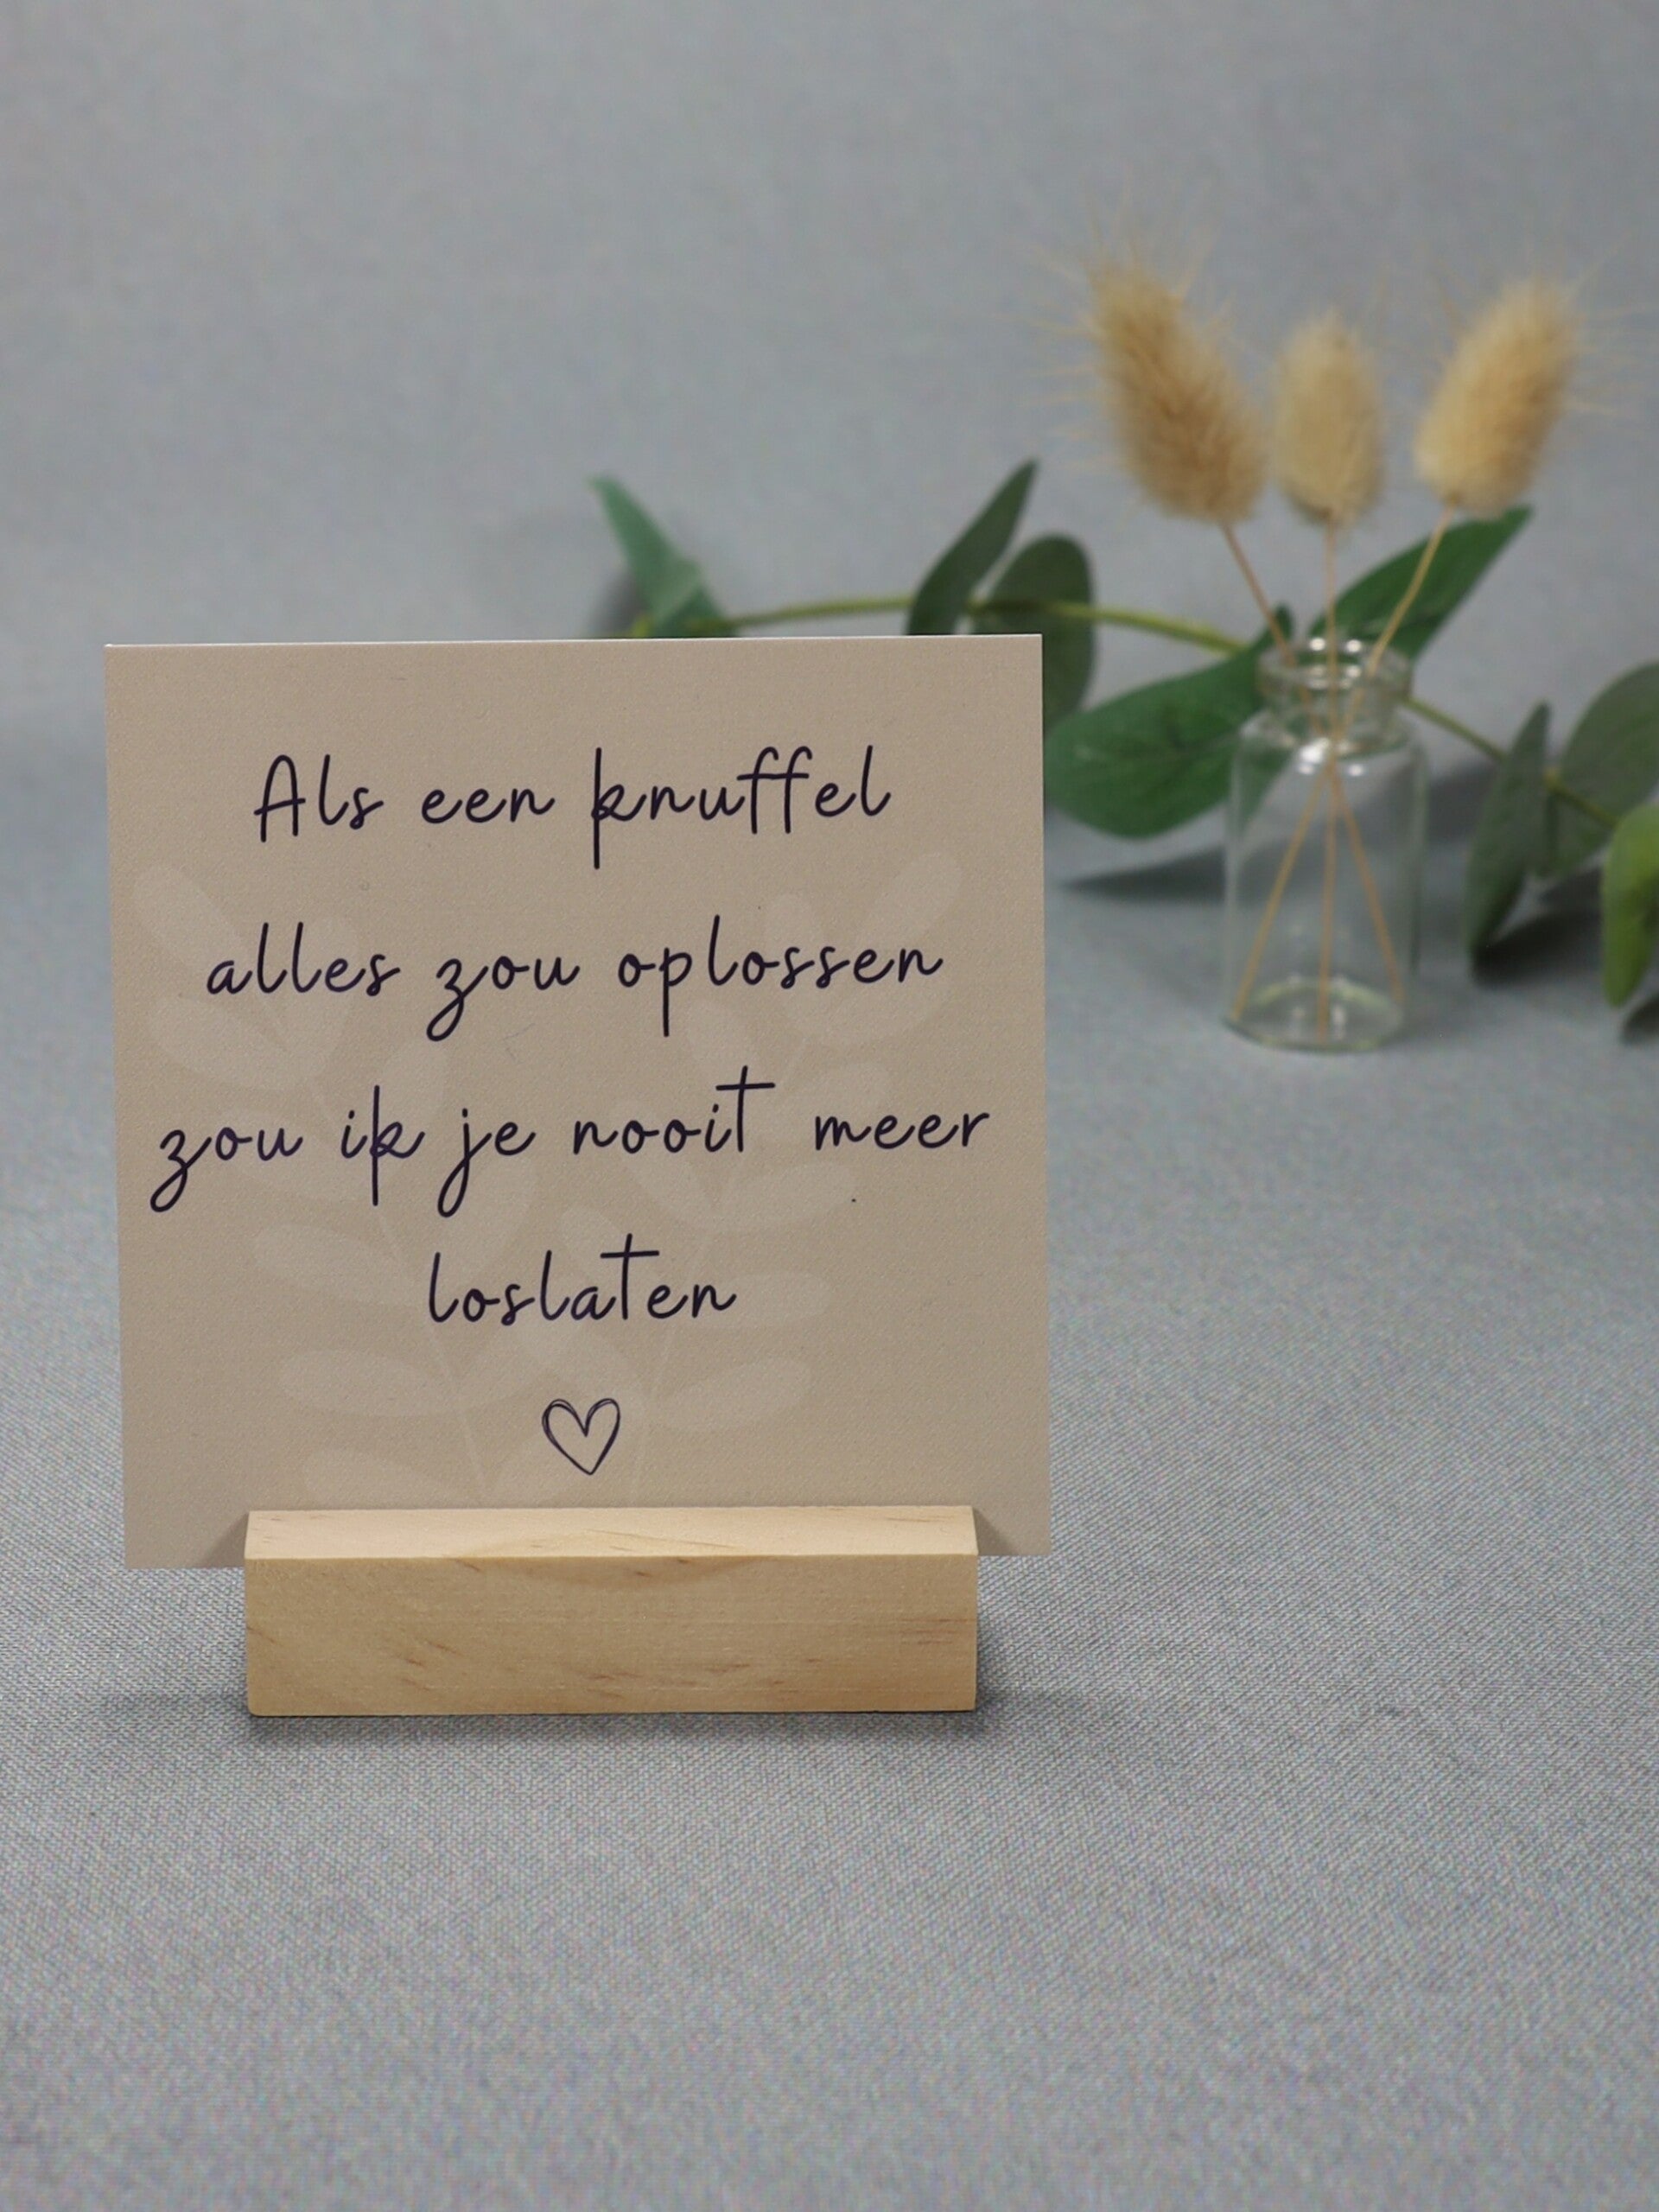 Als een knuffel
alles zou oplossen
zou ik je nooit meer
loslaten